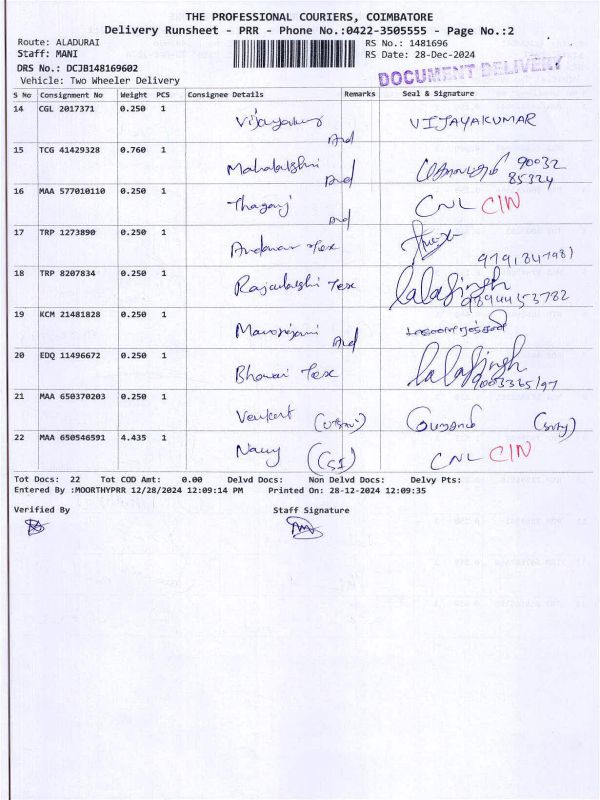 THE PROFESSIONAL COURIERS, COIMBATORE
Delivery Runsheet - PRR - Phone No.:0422-3505555 - Page No.:2
Route: ALADURAI RS No.: 1481696
Staff: MANI RS Date: 28-Dec-2024
DRS No.: DCJB148169602
DOCUMENT DELIVERY
Vehicle: Two Wheeler Delivery
S No Consignment No Weight PCS Consignee Details Remarks Seal & Signature
14 CGL 2017371 0.250 1 Vijayakumar VIJAYAKUMAR
15 TCG 41429328 0.760 1 Mahalakshmi 90032
85324
16 MAA 577010110 0.250 1 Thagaraj CNL CIN
17 TRP 1273890 0.250 1 Andavar Tex
9791847981
18 TRP 8207834 0.250 1 Rajalakshmi Tex Lalasingh
9894453782
19 KCM 21481828 0.250 1
20 EDQ 11496672 0.250 1 Bhavani Tex Lalasingh
21 MAA 650370203 0.250 1 Venkat
22 MAA 650546591 4.435 1 CNL CIN
Tot Docs: 22 Tot COD Amt: 0.00 Delvd Docs: Non Delvd Docs: Delvy Pts:
Entered By :MOORTHYPRR 12/28/2024 12:09:14 PM Printed On: 28-12-2024 12:09:35
Verified By Staff Signature